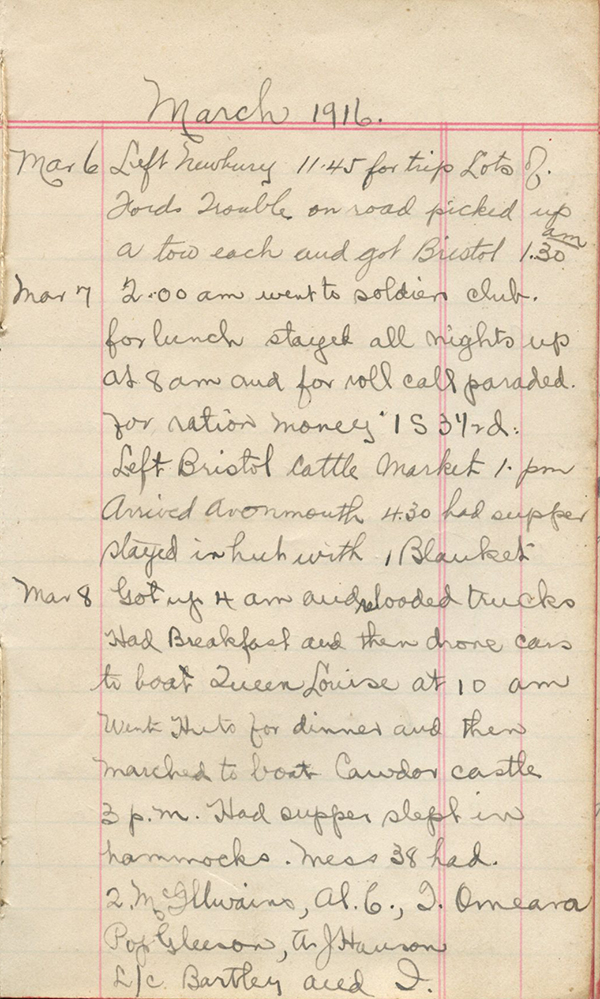 March 1916.
Mar 6 Left Newbury 11.45 for trip Lots of.
Fords Trouble on road picked up
a tow each and got Bristol 1.30 am
Mar 7 2.00 am went to soldiers club.
for lunch stayed all nights up
at 8 am and for roll call paraded.
for ration money 1 S
Left Bristol Cattle Market 1. pm
Arrived Avonmouth 4.30 had supper
stayed in hut with 1 Blanket
Mar 8 Got up 4 am and reloaded trucks
Had Breakfast and then drove cars
to boat Queen Louise at 10 am
Went Huts for dinner and then
marched to boat Cawdor castle
3 p.m. Had supper slept in
hammocks. Mess 38 had.
2. McIllwains, Al. C., I. Omeara
Pop Gleeson, A J Hanson
L/c. Bartley and I.